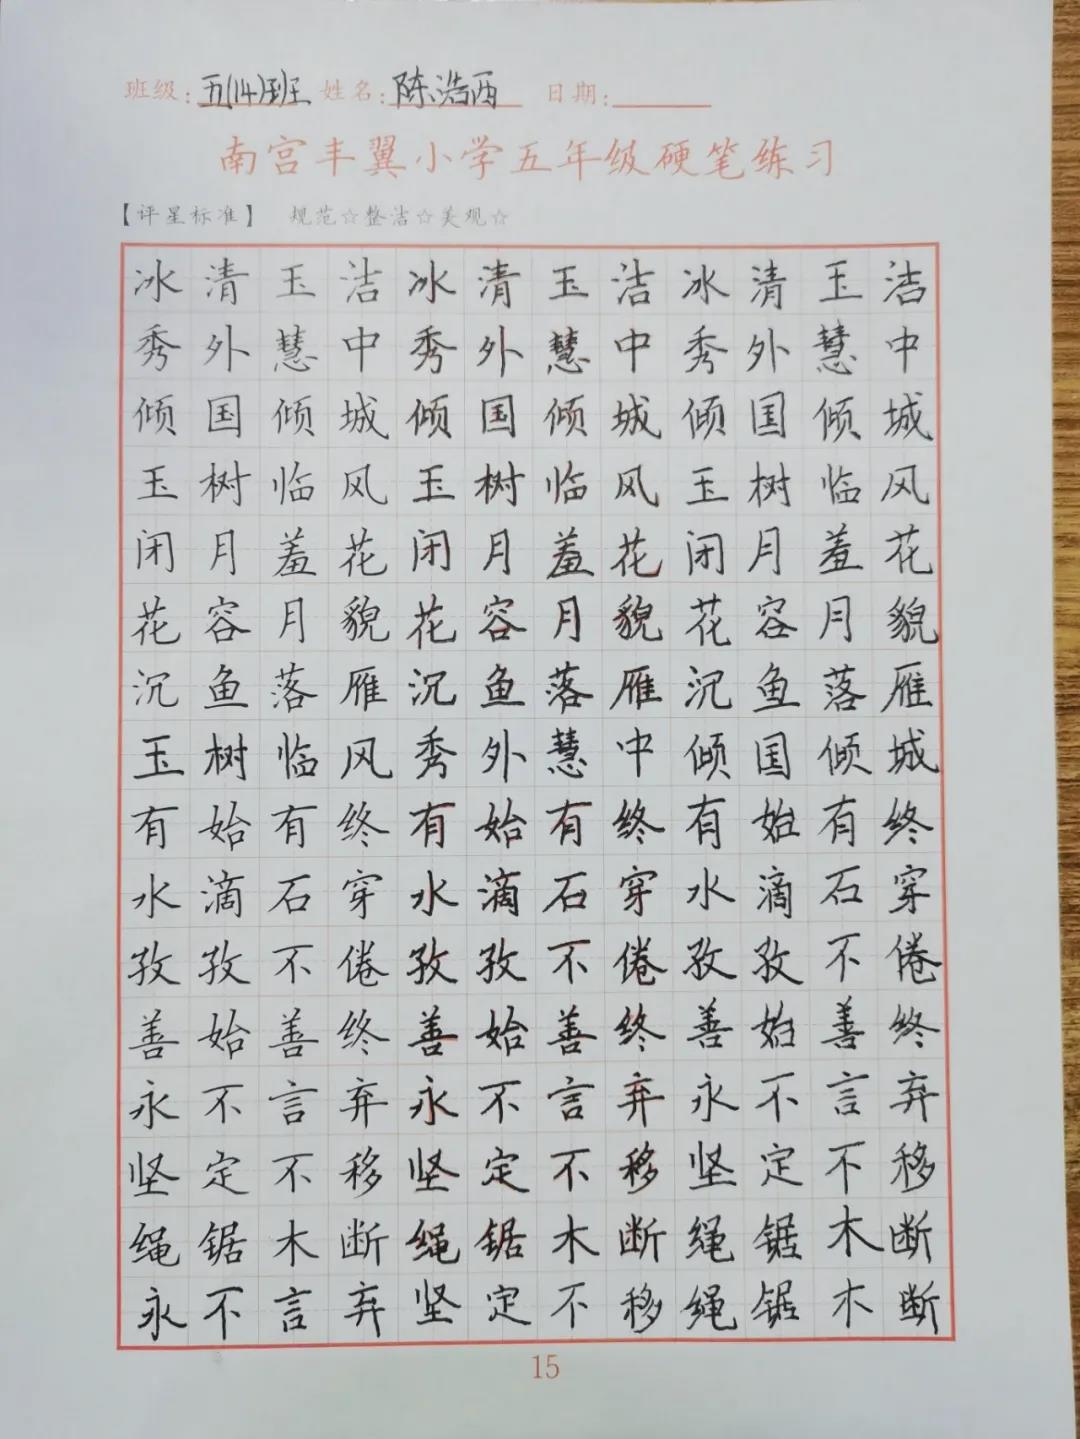 班级:五(14)班 姓名:陈浩西 日期:
南宫丰翼小学五年级硬笔练习
【评星标准】 规范☆整洁☆美观☆
冰清玉洁冰清玉洁冰清玉洁
秀外慧中秀外慧中秀外慧中
倾国倾城倾国倾城倾国倾城
玉树临风玉树临风玉树临风
闭月羞花闭月羞花闭月羞花
花容月貌花容月貌花容月貌
沉鱼落雁沉鱼落雁沉鱼落雁
玉树临风秀外慧中倾国倾城
有始有终有始有终有始有终
水滴石穿水滴石穿水滴石穿
孜孜不倦孜孜不倦孜孜不倦
善始善终善始善终善始善终
永不言弃永不言弃永不言弃
坚定不移坚定不移坚定不移
绳锯木断绳锯木断绳锯木断
永不言弃坚定不移绳锯木断
15